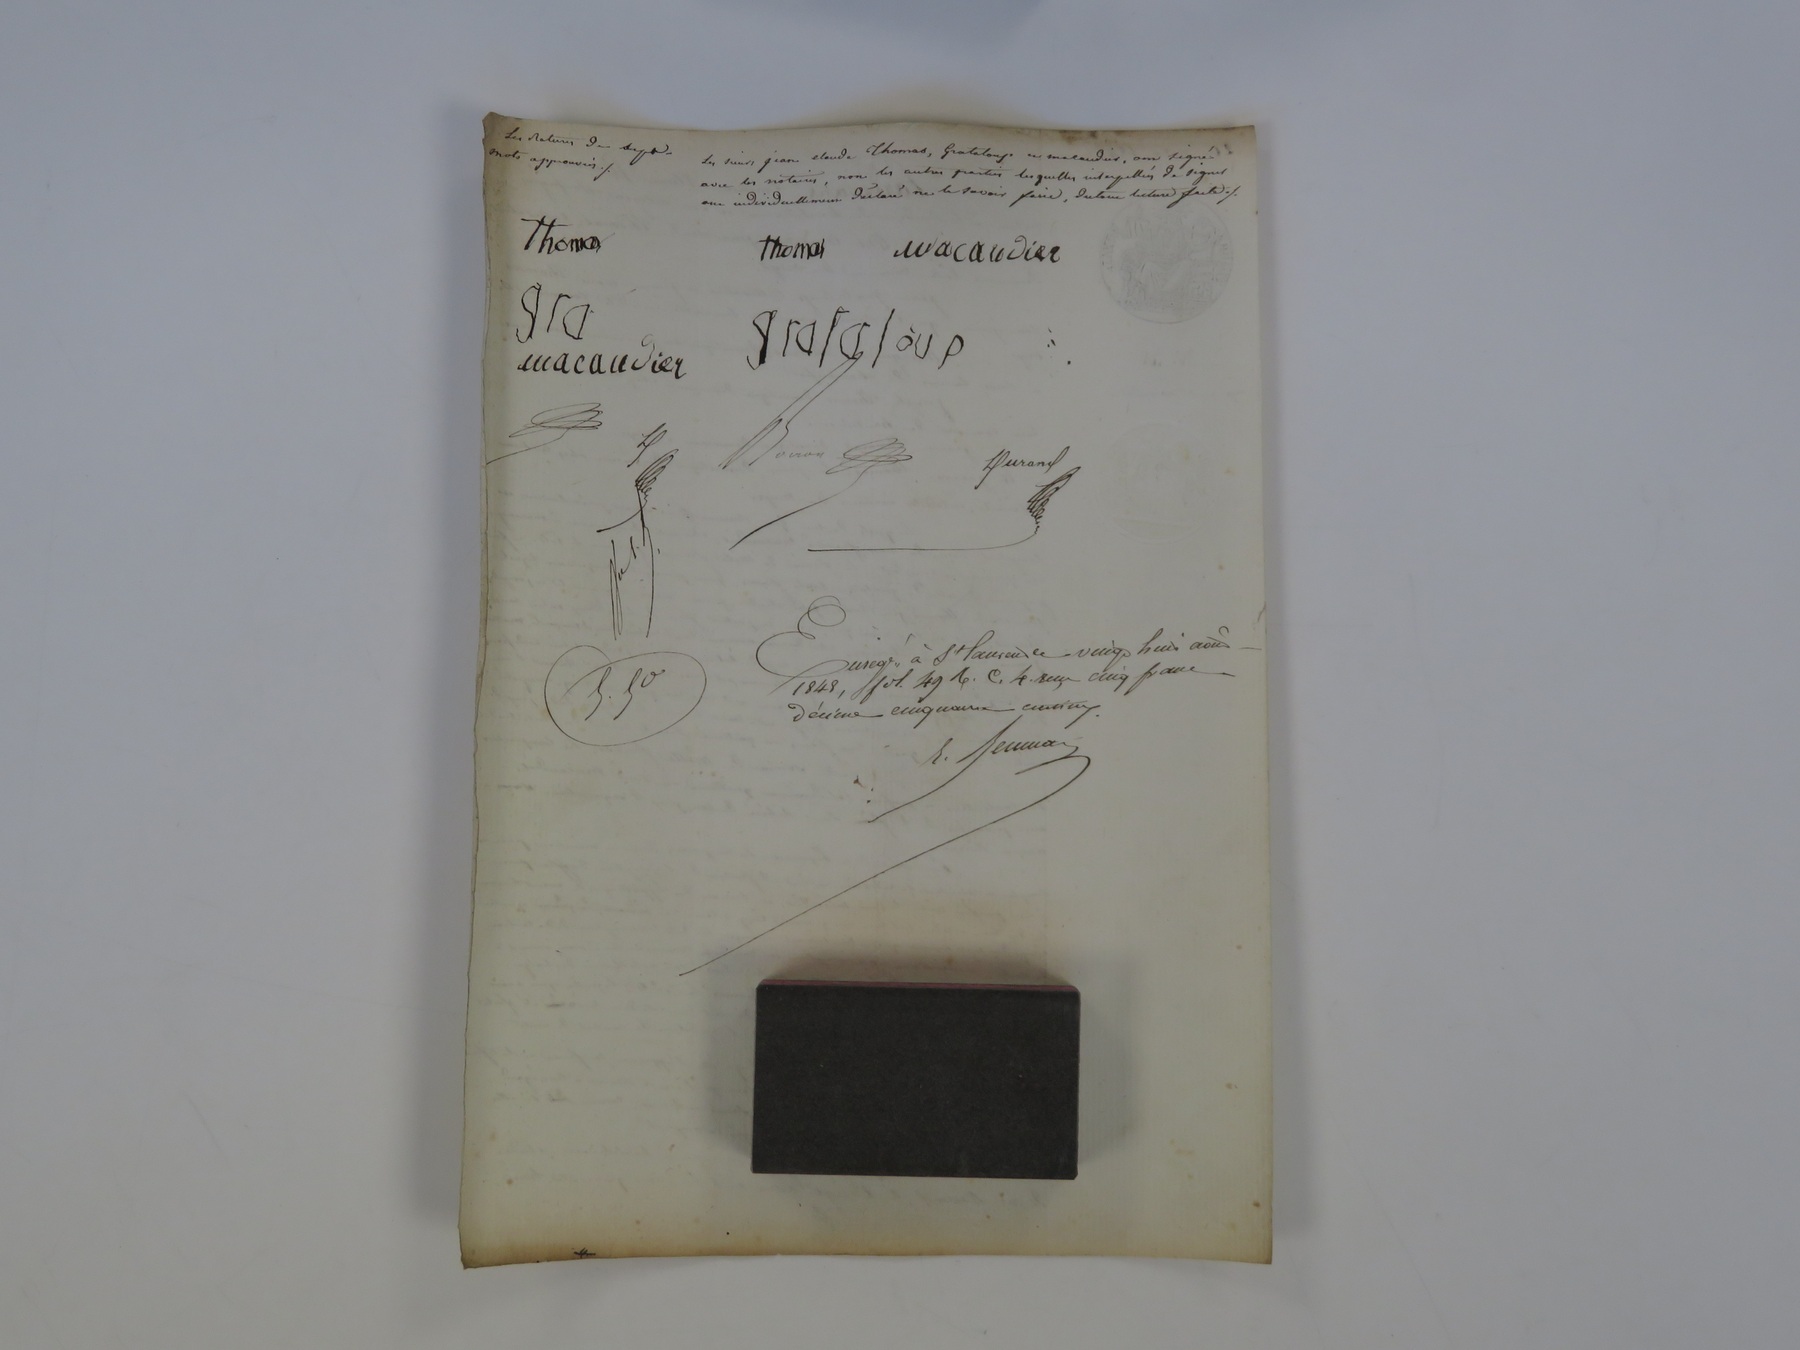 Les ratures de sept
mots approuvés ./.
Les sieurs jean claude Thomas, Grataloup et macaudier, ont signé
avec les notaires, non les autres parties lesquelles interpellées de signer
ont individuellement déclaré ne le savoir faire, du tout lecture faite ./.
Thomas
Thomas macaudier
gra
grataloup
macaudier
D
Durand
Enregé à St Laurent le vingt huit août
1848, fol. 49 R. C. 4. reçu cinq francs
décime cinquante centimes.
5. 50